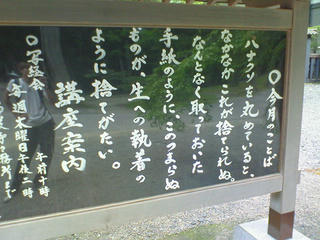 ○今月のことば
ハナクソを丸めていると、
なかなかこれが捨てられぬ。
なんとなく取っておいた
手紙のように、このつまらぬ
ものが、生への執着の
ように捨てがたい。
講座案内
○写経会
午前十時
毎週火曜日午後二時